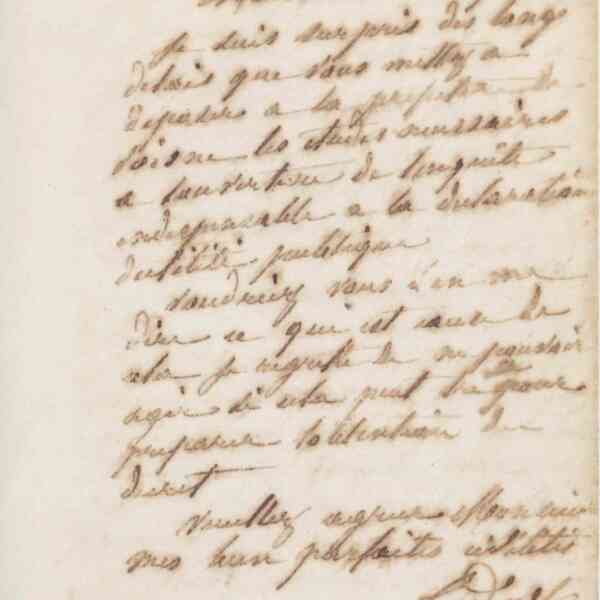 Je suis surpris des longs
delais que vous mettez a
deposer a la prefecture de
l'oise les etudes necessaires
a l'ouverture de l'enquête
indispensable a la declaration
d'utilité publique
Voudriez vous bien me
dire ce qui est cause de
cela je regrette de ne pouvoir
agir si cela peut être pour
preparer l'obtention du
decret
Veuillez agreer Monsieur
mes bien parfaites civilités